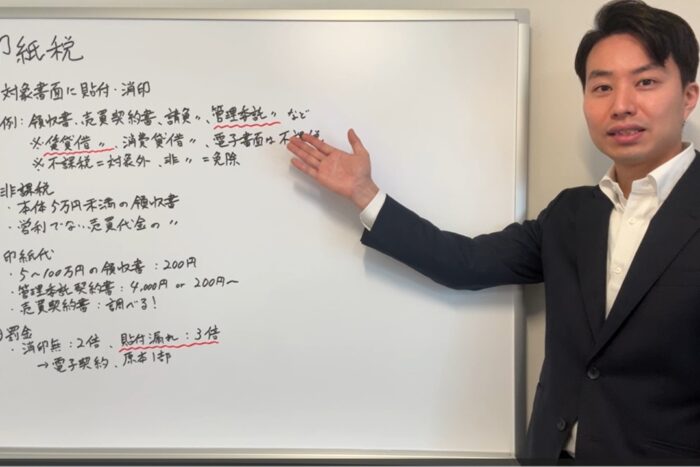 印紙税
対象書面に貼付・消印
例：領収書、売買契約書、請負〃、管理委託〃 など
※賃貸借〃、消費貸借〃、電子書面は不課税
※不課税＝対象外、非〃＝免除
非課税
・本体5万円未満の領収書
・営利でない売買代金の〃
印紙代
・5〜100万円の領収書：200円
・管理委託契約書：4,000円 or 200円〜
・売買契約書：調べる！
罰金
・消印無：2倍、貼付漏れ：3倍
→電子契約、原本1部